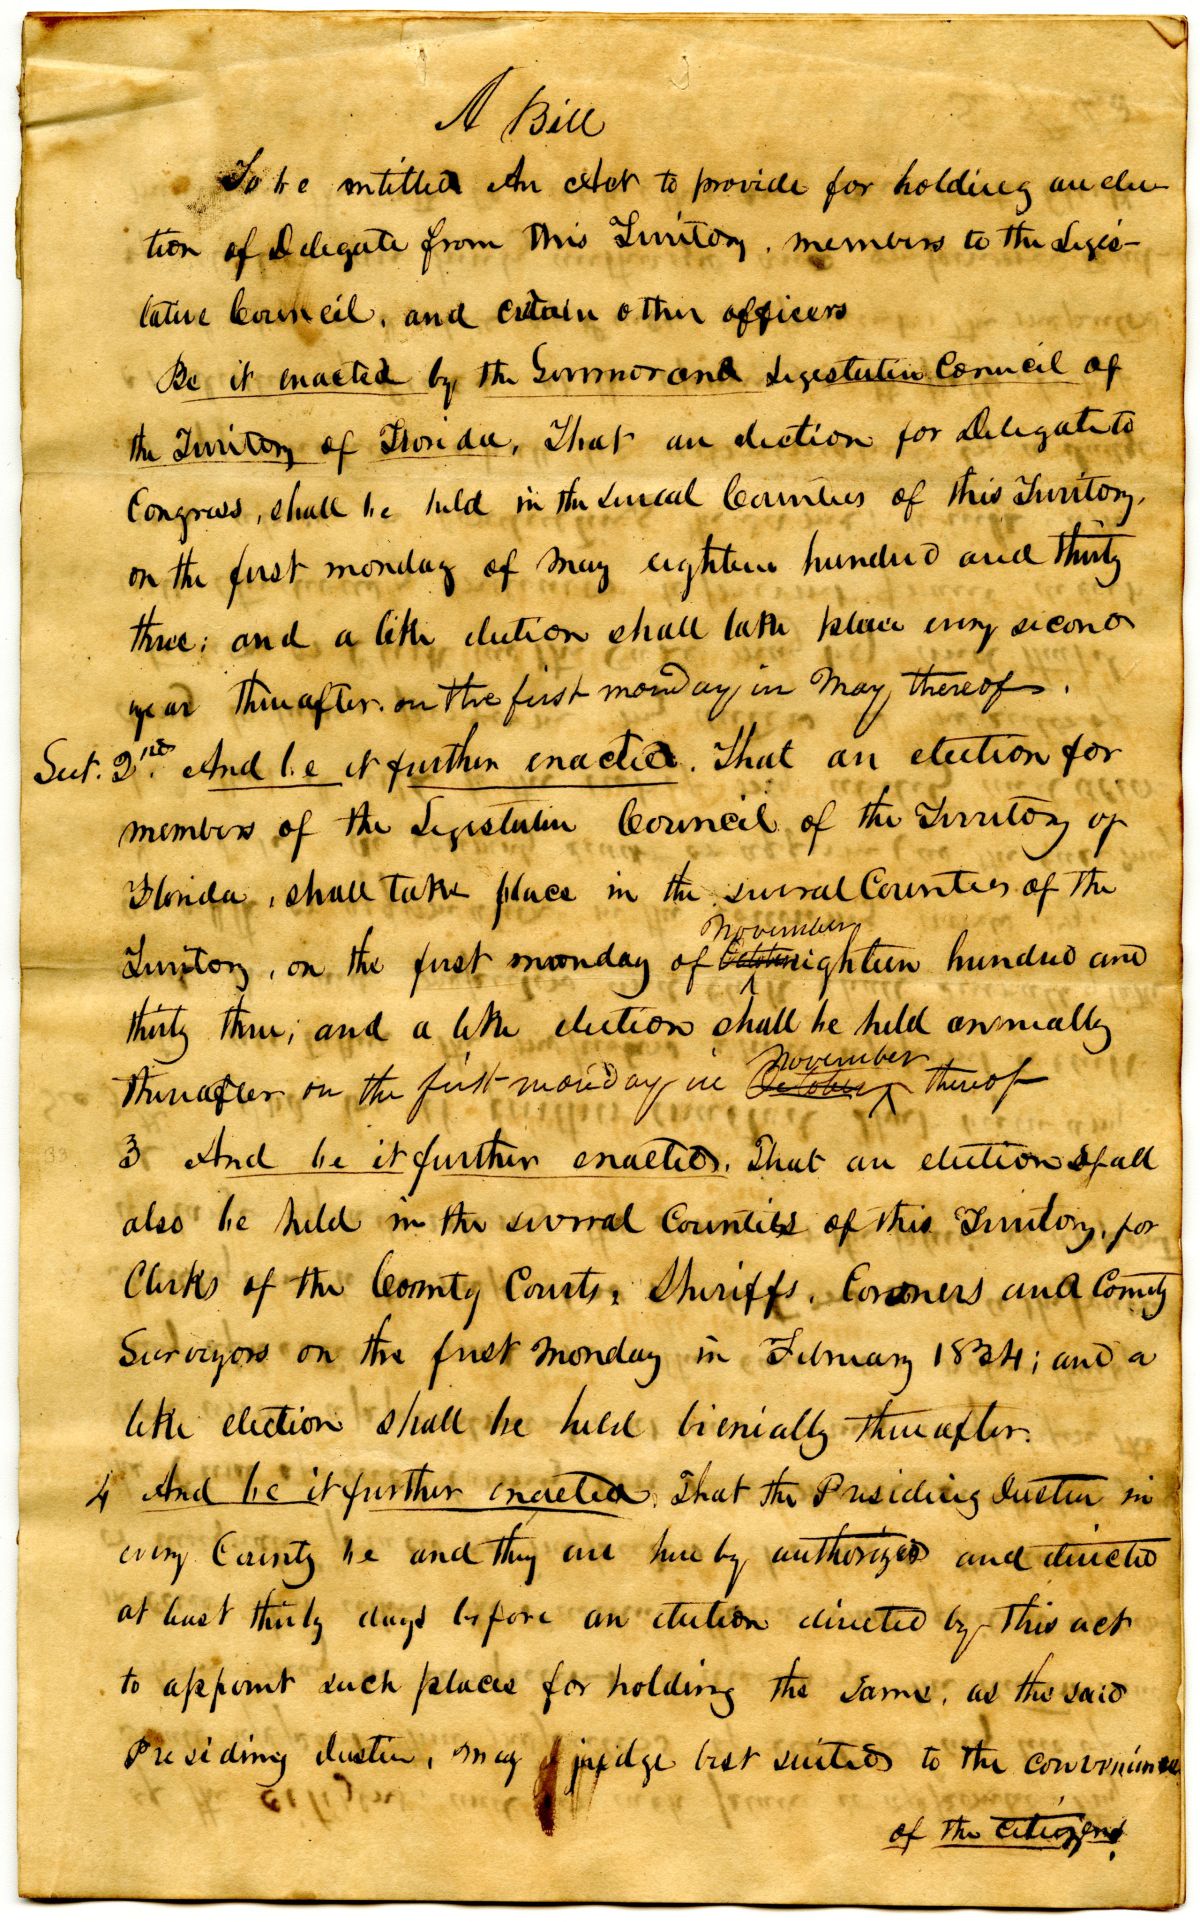 A Bill
To be entitled An Act to provide for holding an elec-
tion of Delegate from this Territory, members to the Legis-
lative Council, and certain other officers
Be it enacted by the Governor and Legislative Council of
the Territory of Florida, That an election for Delegate to
Congress, shall be held in the several Counties of this Territory,
on the first monday of May eighteen hundred and thirty
three; and a like election shall take place every second
year thereafter. on the first monday in May thereof.
Sect. 2nd. And be it further enacted. That an election for
members of the Legislative Council of the Territory of
Florida, shall take place in the several Counties of the
November
Territory, on the first monday of October eighteen hundred and
thirty three; and a like election shall be held annually
November
thereafter on the first monday in October thereof
3 And be it further enacted. That an election shall
also be held in the several Counties of this Territory, for
Clerks of the County Courts, Sheriffs, Coroners and County
Surveyors on the first Monday in February 1834; and a
like election shall be held bienially thereafter.
4 And be it further enacted, That the Presiding Justice in
every County be and they are here by authorized and directed
at least thirty days before an election directed by this act
to appoint such places for holding the same, as the said
Presiding Justice, may judge best suited to the convenience
of the citizens.